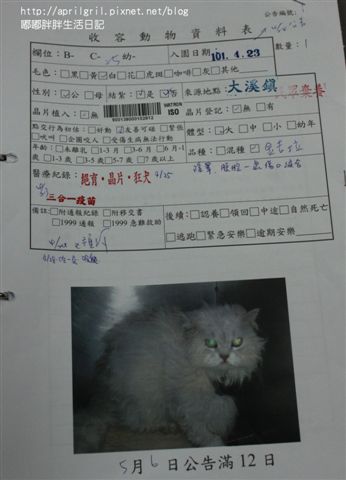 http://aprilgril.pixnet.net/blog
嘟嘟胖胖生活日記
公告編號：
收容動物資料表
欄位：B- C- 幼-
入園日期：101.4.23
數量：1
毛色：□黑□黃☑白□花□虎斑□咖啡□灰□其他
性別：☑公□母
結紮：☑是
來源地點：大溪鎮
晶片植入：☑無
ISO
晶片登記：☑無 □有
點交行為初估：□好動☑友善可碰□緊張
□吠叫□會咬人□受傷生病無法行動
體型：☑大□中□小□幼年
年齡：□未離乳□1-3月□3-6月□6月-1
□1-3歲□3-5歲□5-7歲□7歲以上
品種：□混種☑
醫療紀錄：絕育·晶片·狂犬 4/25
三合一疫苗
備註：□附通報紀錄□附移交書
□1999通報□1999急難救助
後續：□認養□領回□中途□自然死亡
□逃跑□緊急安樂□逾期安樂
5月6日公告滿12日